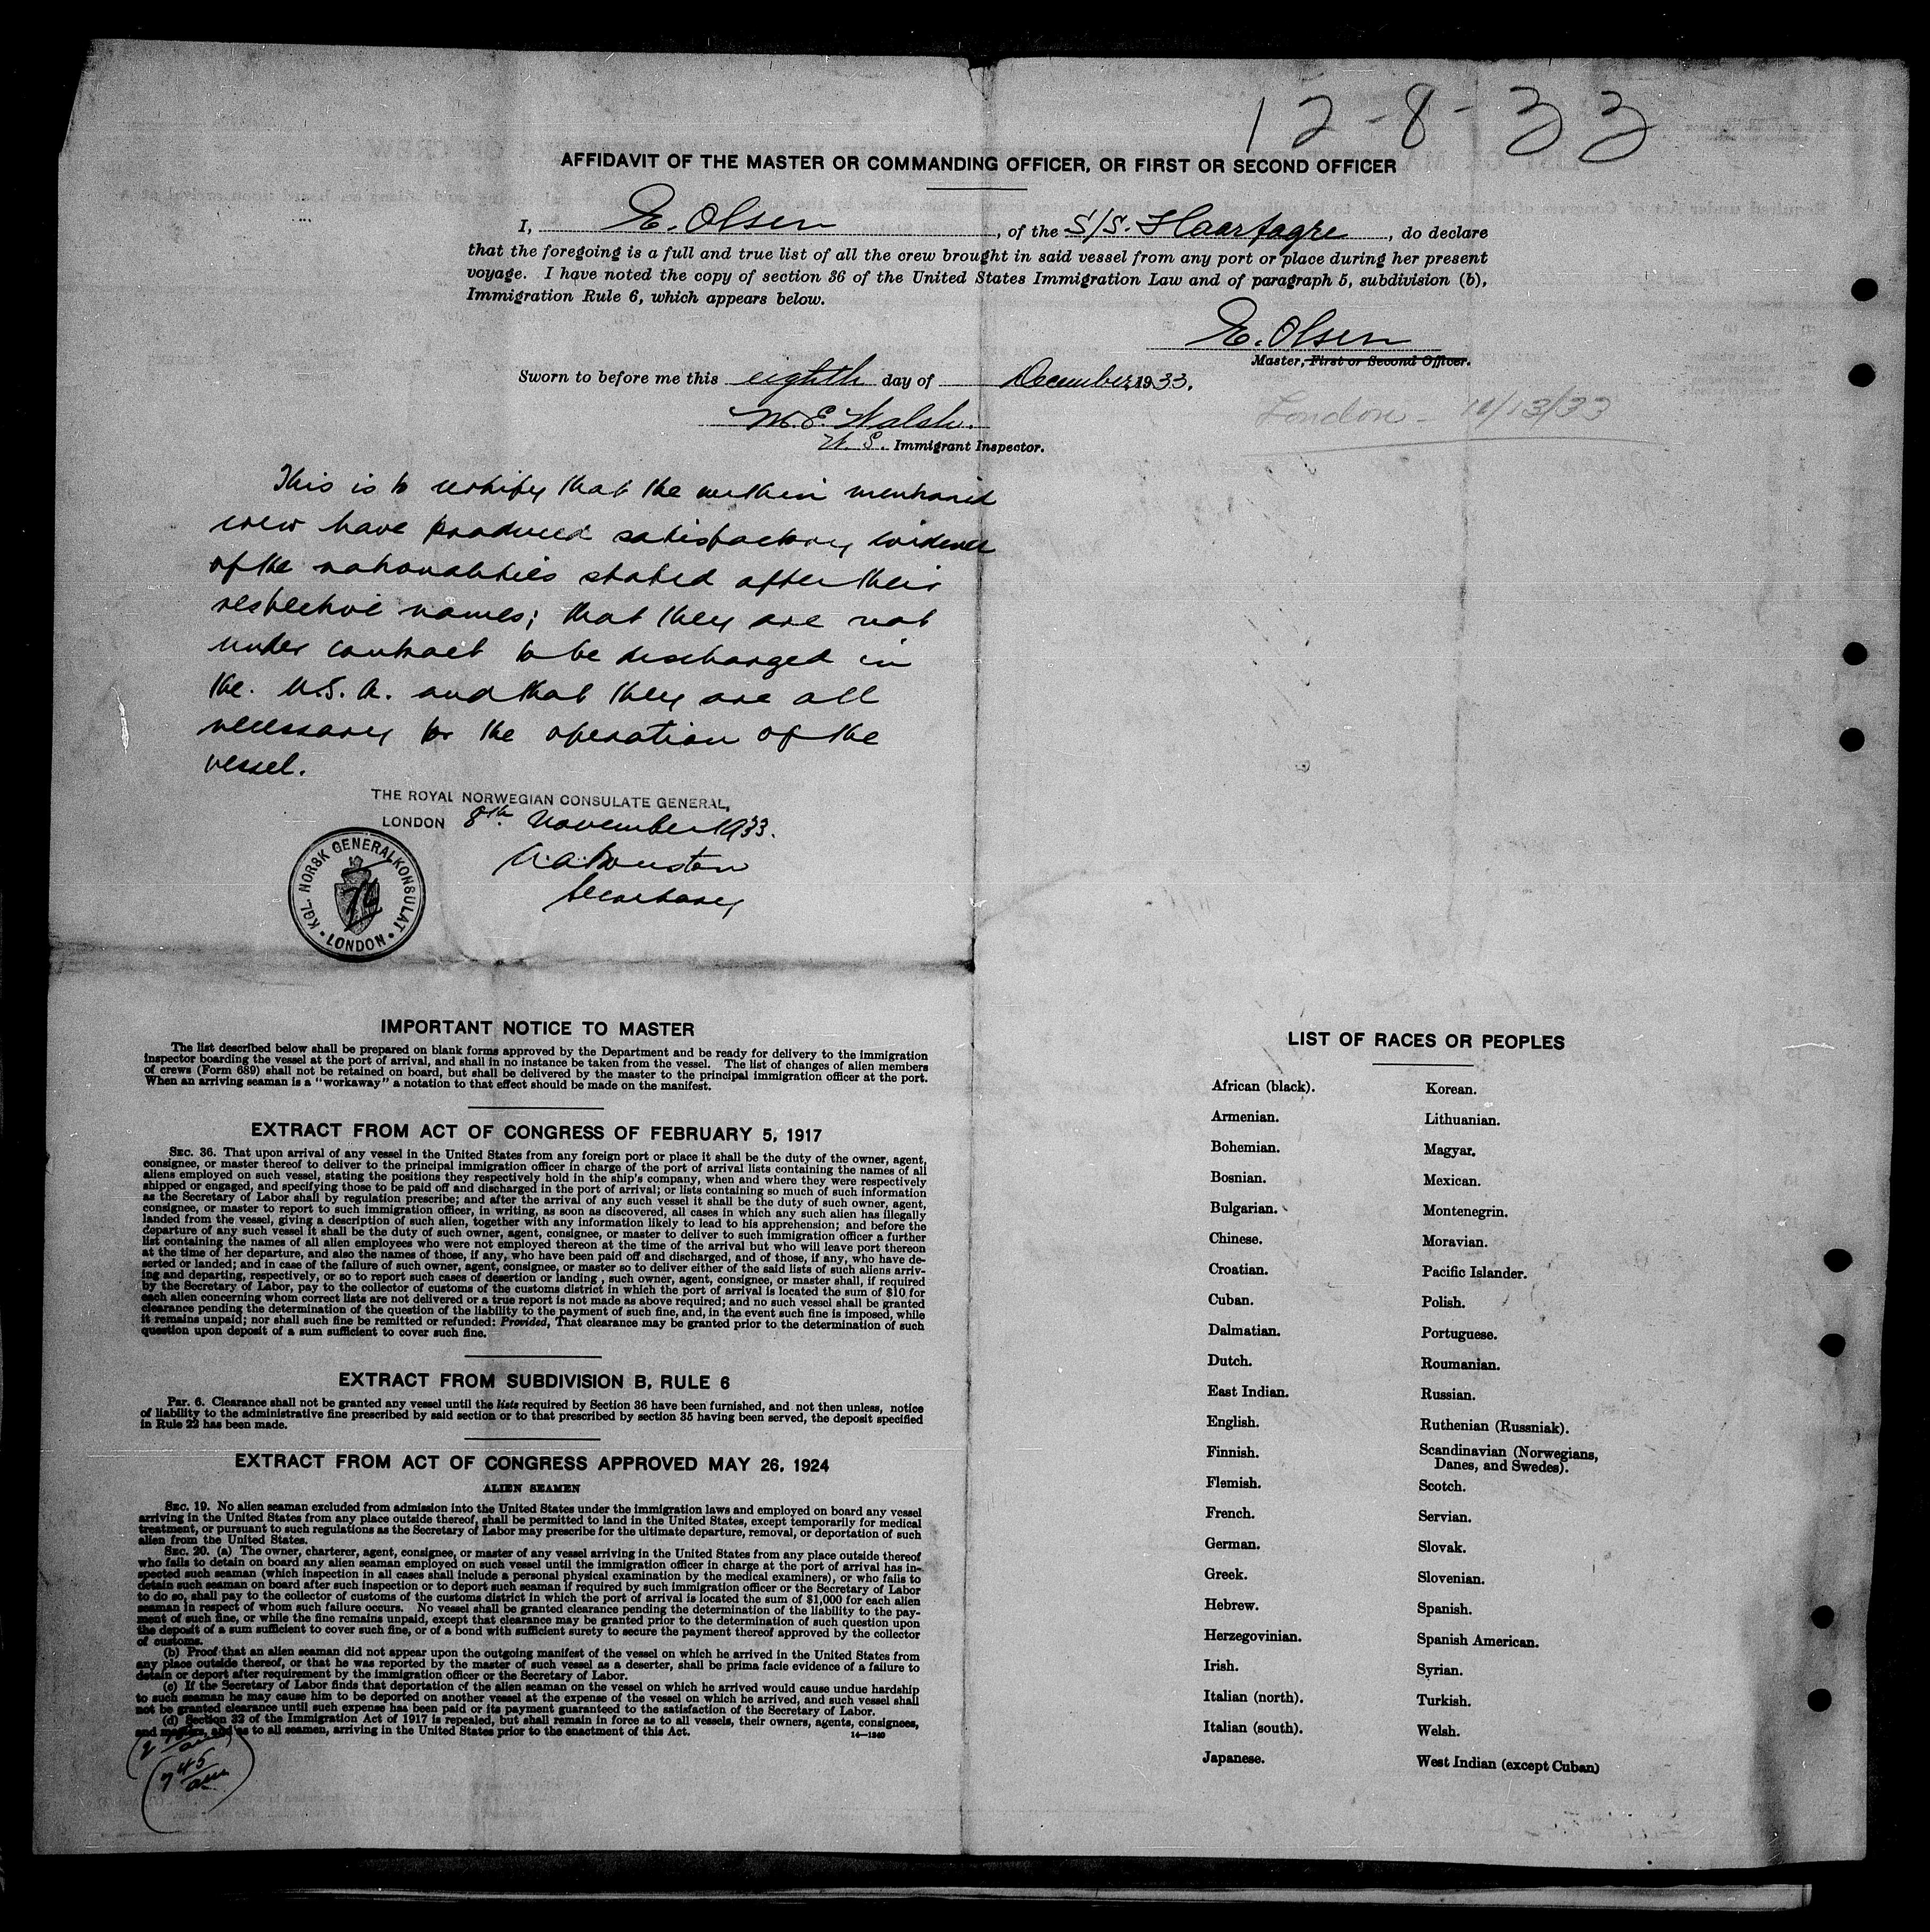 12-8-33
AFFIDAVIT OF THE MASTER OR COMMANDING OFFICER, OR FIRST OR SECOND OFFICER
I, E. Olsen, of the S/S. Haarfagre, do declare
that the foregoing is a full and true list of all the crew brought in said vessel from any port or place during her present
voyage. I have noted the copy of section 36 of the United States Immigration Law and of paragraph 5, subdivision (b),
Immigration Rule 6, which appears below.
E. Olsen
Master, First or Second Officer.
Sworn to before me this eighth day of December, 1933.
London - 11/13/33
M. E. Walsh.
U. S. Immigrant Inspector.
This is to certify that the within mentioned
crew have produced satisfactory evidence
of the nationalities stated after their
respective names; that they are not
under contract to be discharged in
the. U.S.A. and that they are all
necessary for the operation of the
vessel.
THE ROYAL NORWEGIAN CONSULATE GENERAL,
LONDON 8th November 1933.
Secretary
KGL. NORSK GENERALKONSULAT
LONDON
IMPORTANT NOTICE TO MASTER
The list described below shall be prepared on blank forms approved by the Department and be ready for delivery to the immigration
inspector boarding the vessel at the port of arrival, and shall in no instance be taken from the vessel. The list of changes of alien members
of crews (Form 689) shall not be retained on board, but shall be delivered by the master to the principal immigration officer at the port.
When an arriving seaman is a "workaway" a notation to that effect should be made on the manifest.
EXTRACT FROM ACT OF CONGRESS OF FEBRUARY 5, 1917
SEC. 36. That upon arrival of any vessel in the United States from any foreign port or place it shall be the duty of the owner, agent,
consignee, or master thereof to deliver to the principal immigration officer in charge of the port of arrival lists containing the names of all
aliens employed on such vessel, stating the positions they respectively hold in the ship's company, when and where they were respectively
shipped or engaged, and specifying those to be paid off and discharged in the port of arrival; or lists containing so much of such information
as the Secretary of Labor shall by regulation prescribe; and after the arrival of any such vessel it shall be the duty of such owner, agent,
consignee, or master to report to such immigration officer, in writing, as soon as discovered, all cases in which any such alien has illegally
landed from the vessel, giving a description of such alien, together with any information likely to lead to his apprehension; and before the
departure of any such vessel it shall be the duty of such owner, agent, consignee, or master to deliver to such immigration officer a further
list containing the names of all alien employees who were not employed thereon at the time of the arrival but who will leave port thereon
at the time of her departure, and also the names of those, if any, who have been paid off and discharged, and of those, if any, who have de-
serted or landed; and in case of the failure of such owner, agent, consignee, or master so to deliver either of the said lists of such aliens arriv-
ing and departing, respectively, or so to report such cases of desertion or landing, such owner, agent, consignee, or master shall, if required
by the Secretary of Labor, pay to the collector of customs of the customs district in which the port of arrival is located the sum of $10 for
each alien concerning whom correct lists are not delivered or a true report is not made as above required; and no such vessel shall be granted
clearance pending the determination of the question of the liability to the payment of such fine, and, in the event such fine is imposed, while
it remains unpaid; nor shall such fine be remitted or refunded: Provided, That clearance may be granted prior to the determination of such
question upon deposit of a sum sufficient to cover such fine.
EXTRACT FROM SUBDIVISION B, RULE 6
PAR. 6. Clearance shall not be granted any vessel until the lists required by Section 36 have been furnished, and not then unless, notice
of liability to the administrative fine prescribed by said section or to that prescribed by section 35 having been served, the deposit specified
in Rule 22 has been made.
EXTRACT FROM ACT OF CONGRESS APPROVED MAY 26, 1924
ALIEN SEAMEN
SEC. 19. No alien seaman excluded from admission into the United States under the immigration laws and employed on board any vessel
arriving in the United States from any place outside thereof, shall be permitted to land in the United States, except temporarily for medical
treatment, or pursuant to such regulations as the Secretary of Labor may prescribe for the ultimate departure, removal, or deportation of such
alien from the United States.
SEC. 20. (a) The owner, charterer, agent, consignee, or master of any vessel arriving in the United States from any place outside thereof
who fails to detain on board any alien seaman employed on such vessel until the immigration officer in charge at the port of arrival has in-
spected such seaman (which inspection in all cases shall include a personal physical examination by the medical examiners), or who fails to
detain such seaman on board after such inspection or to deport such seaman if required by such immigration officer or the Secretary of Labor
to do so, shall pay to the collector of customs of the customs district in which the port of arrival is located the sum of $1,000 for each alien
seaman in respect of whom such failure occurs. No vessel shall be granted clearance pending the determination of the liability to the pay-
ment of such fine, or while the fine remains unpaid, except that clearance may be granted prior to the determination of such question upon
the deposit of a sum sufficient to cover such fine, or of a bond with sufficient surety to secure the payment thereof approved by the collector
of customs.
(b) Proof that an alien seaman did not appear upon the outgoing manifest of the vessel on which he arrived in the United States from
any place outside thereof, or that he was reported by the master of such vessel as a deserter, shall be prima facie evidence of a failure to
detain or deport after requirement by the immigration officer or the Secretary of Labor.
(c) If the Secretary of Labor finds that deportation of the alien seaman on the vessel on which he arrived would cause undue hardship
to such seaman he may cause him to be deported on another vessel at the expense of the vessel on which he arrived, and such vessel shall
not be granted clearance until such expense has been paid or its payment guaranteed to the satisfaction of the Secretary of Labor.
(d) Section 32 of the Immigration Act of 1917 is repealed, but shall remain in force as to all vessels, their owners, agents, consignees,
and masters, and as to all seamen, arriving in the United States prior to the enactment of this Act.
14—1240
7 45
am
LIST OF RACES OR PEOPLES
African (black).
Armenian.
Bohemian.
Bosnian.
Bulgarian.
Chinese.
Croatian.
Cuban.
Dalmatian.
Dutch.
East Indian.
English.
Finnish.
Flemish.
French.
German.
Greek.
Hebrew.
Herzegovinian.
Irish.
Italian (north).
Italian (south).
Japanese.
Korean.
Lithuanian.
Magyar.
Mexican.
Montenegrin.
Moravian.
Pacific Islander.
Polish.
Portuguese.
Roumanian.
Russian.
Ruthenian (Russniak).
Scandinavian (Norwegians,
Danes, and Swedes).
Scotch.
Servian.
Slovak.
Slovenian.
Spanish.
Spanish American.
Syrian.
Turkish.
Welsh.
West Indian (except Cuban)